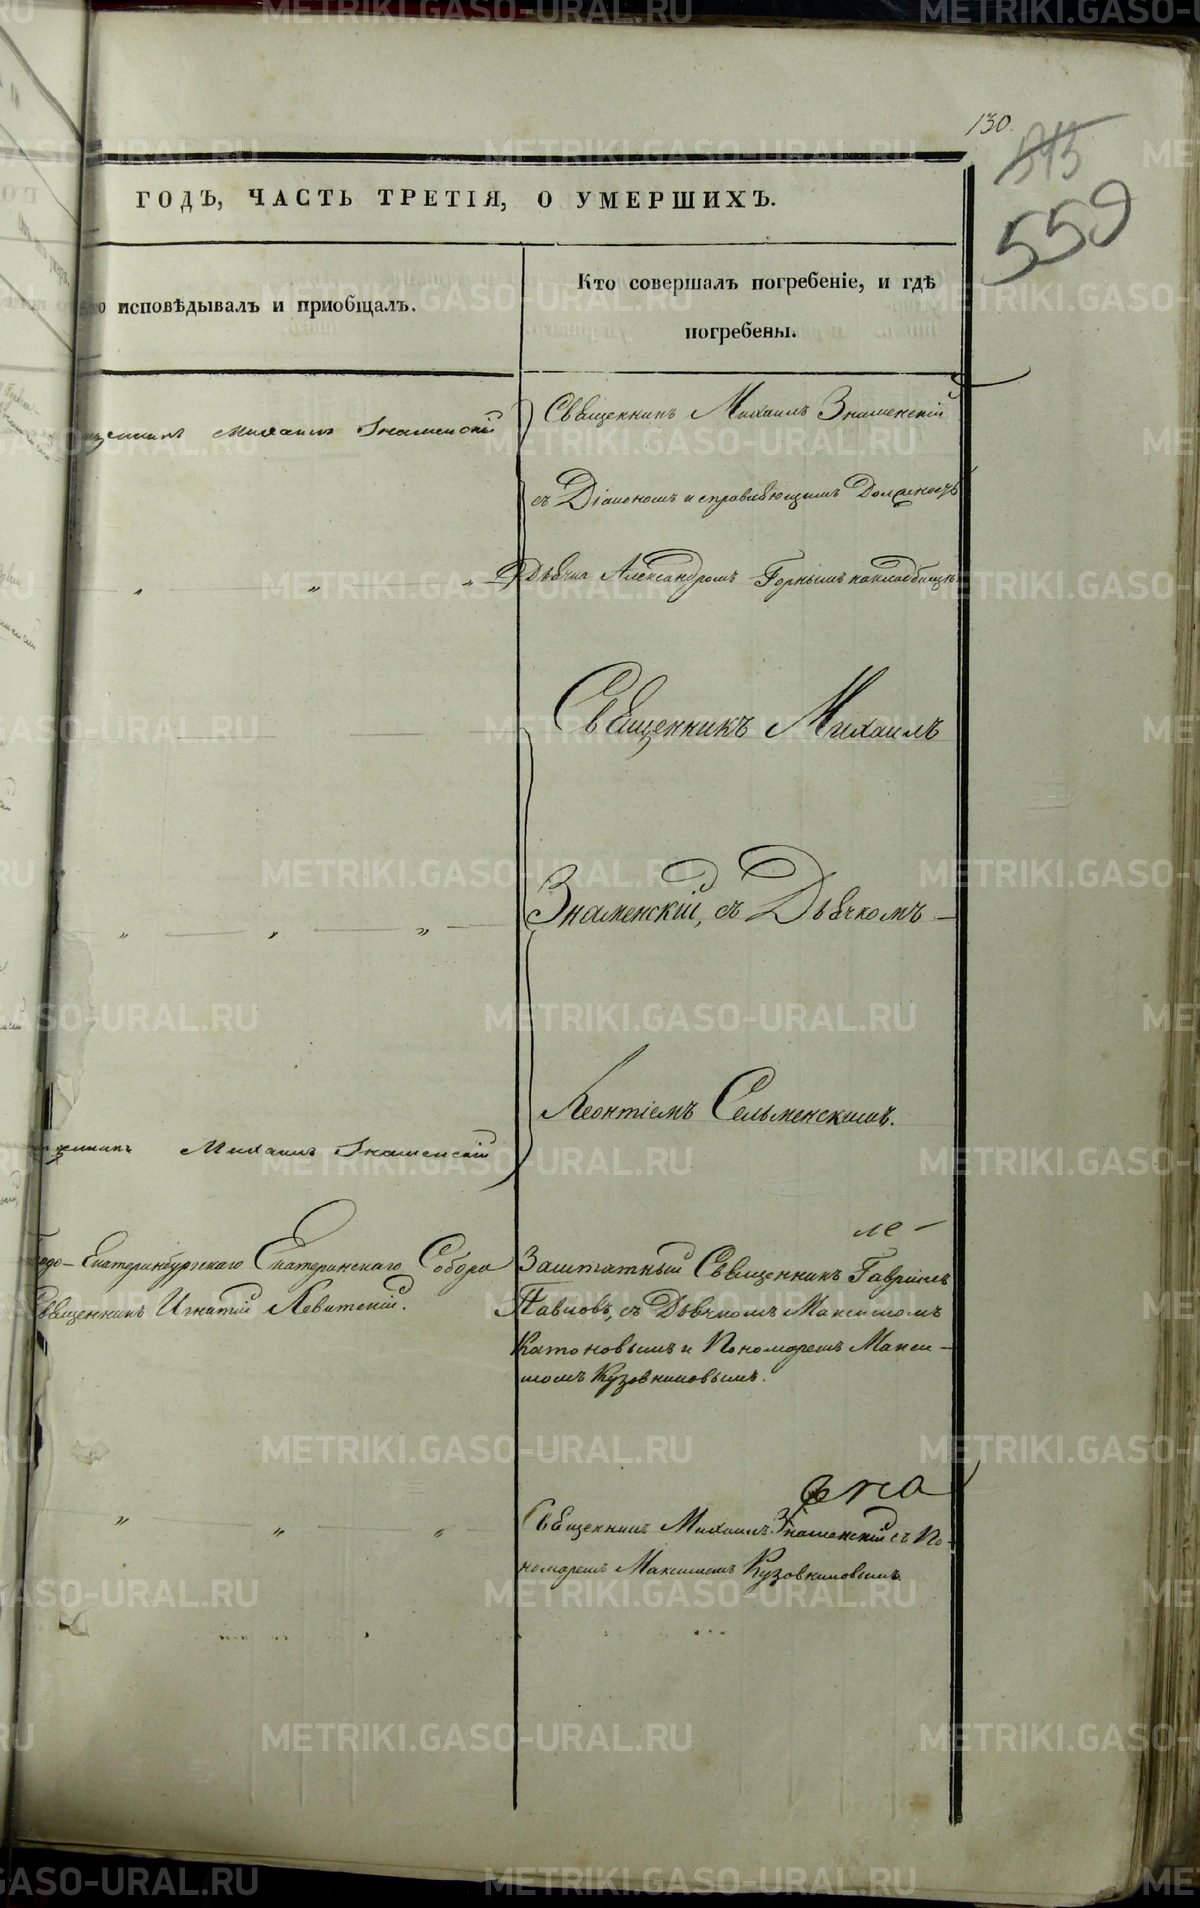 130.
515
559
ГОДЪ, ЧАСТЬ ТРЕТІЯ, О УМЕРШИХЪ.
исповѣдывалъ и пріобщалъ.
Кто совершалъ погребеніе, и гдѣ
погребены.
Михаилъ Знаменскій
Священникъ Михаилъ Знаменскій
съ Діакономъ и справляющимъ Должность
Дьячка Александромъ Горнымъ на кладбищѣ
Священникъ Михаилъ
Знаменскій, съ Дьячкомъ
Леонтіемъ Сельменскимъ.
Михаилъ Знаменскій
Екатеринбургскаго Екатеринскаго Собора
Священникъ Игнатій Левитскій.
ле-
Заштатный Священникъ Гавріилъ
Павловъ, съ Дьячкомъ Максимомъ
Катоновымъ и Пономаремъ Макси-
момъ Кузовниковымъ.
на
Священникъ Михаилъ Знаменскій съ По-
номаремъ Максимомъ Кузовниковымъ.
METRIKI.GASO-URAL.RU